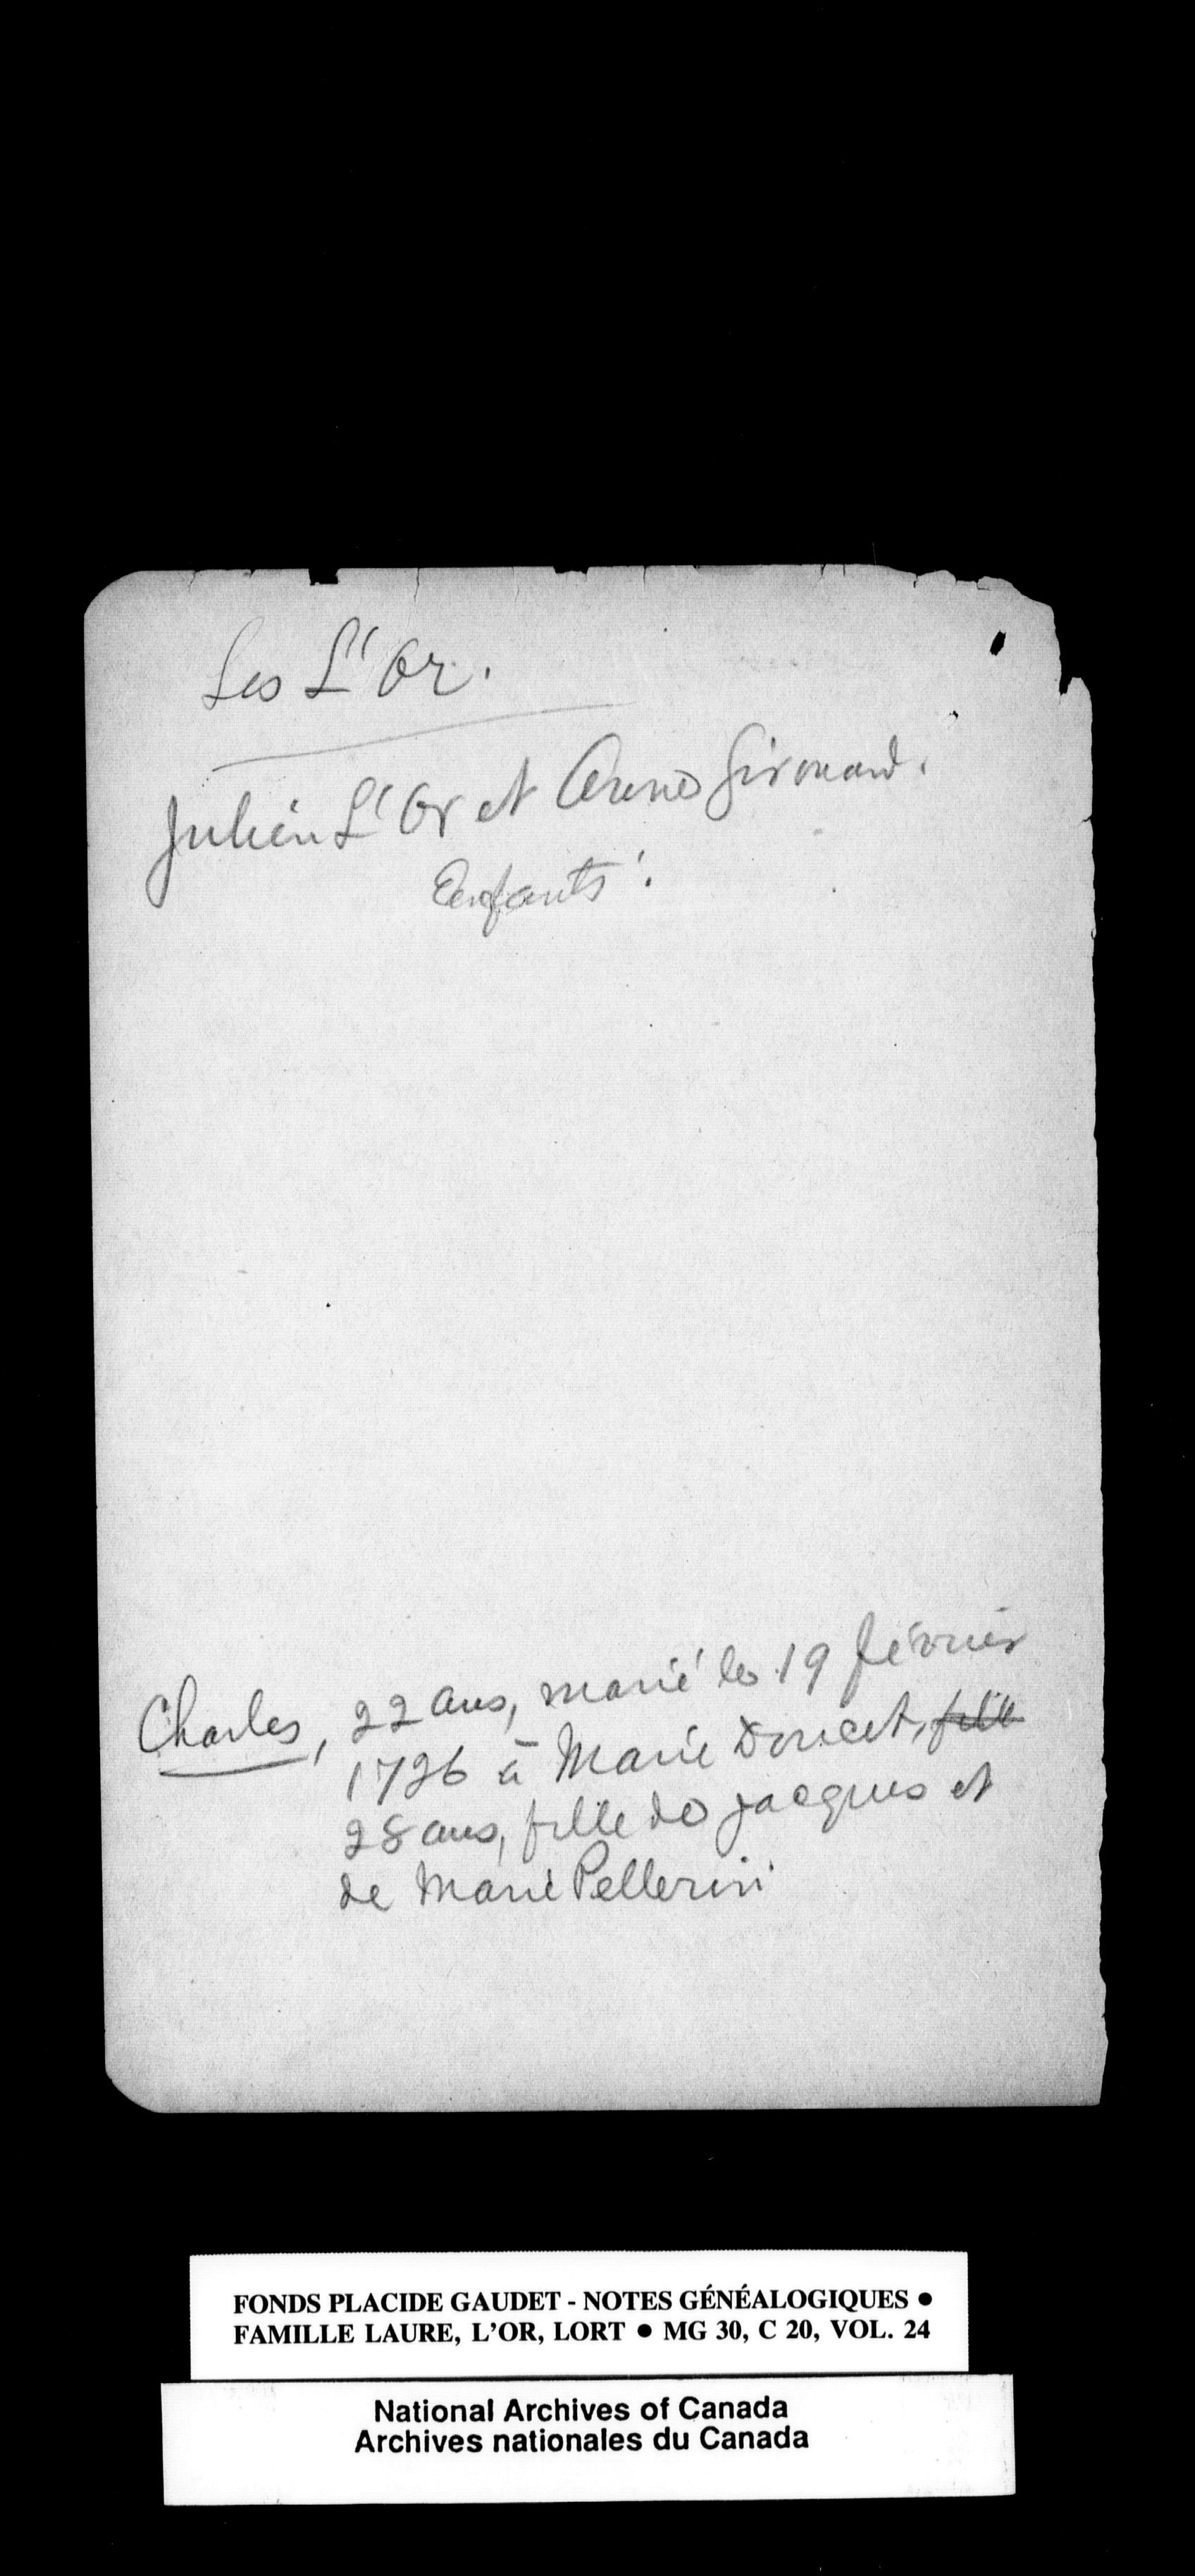 Les L'Or.
Julien L'Or et Anne Girouard.
Enfants :
Charles, 22 ans, marié le 19 février
1726 à Marie Doucet, fille
28 ans, fille de Jacques et
de Marie Pellerin
FONDS PLACIDE GAUDET - NOTES GÉNÉALOGIQUES ●
FAMILLE LAURE, L'OR, LORT ● MG 30, C 20, VOL. 24
National Archives of Canada
Archives nationales du Canada